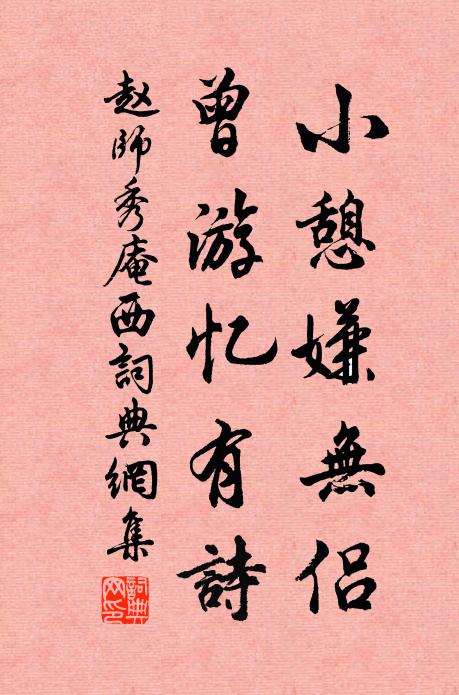 小憩嫌無侣
曾游忆有詩
赵師秀庵西詞典網集
詞典網印